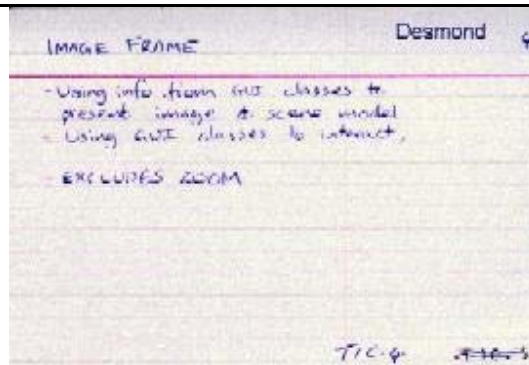 IMAGE FRAME
Desmond
- Using info from GUI classes to
present image & scene model
- Using GUI classes to interact.
- EXCLUDES ZOOM
TIC-4